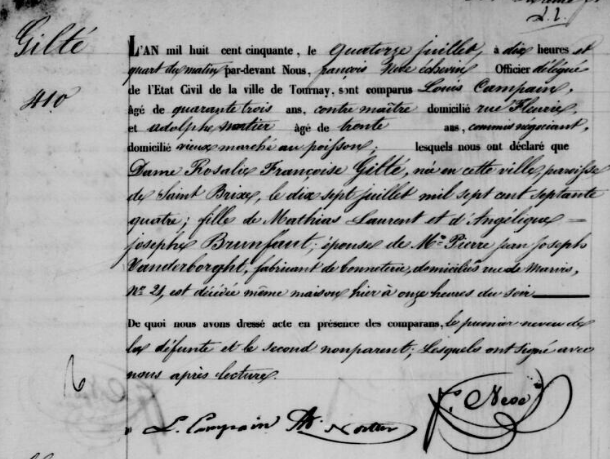 Gilté
410
L'AN mil huit cent cinquante, le quatorze juillet, à dix heures et
quart du matin par-devant Nous, françois Nève échevin Officier délégué
de l'Etat Civil de la ville de Tournay, sont comparus Louis Campain,
âgé de quarante trois ans, contre maître domicilié rue
et adolphe Nortier âgé de trente ans, commis négociant,
domicilié vieux marché au poisson; lesquels nous ont déclaré que
Dame Rosalie Françoise Gilté, née en cette ville, paroisse
de Saint Brixe, le dix sept juillet mil sept cent septante
quatre; fille de Mathias Laurent et d'Angélique =
josephe Brunfaut; épouse de Mr. Pierre jean joseph
Vanderborght, fabricant de bonneterie, domiciliés rue de Marvis,
No. 21, est décédée même maison, hier à onze heures du soir
De quoi nous avons dressé acte en présence des comparans, le premier neveu de
la défunte et le second non parent; Lesquels ont signé avec
nous après lecture.
L. Campain Ad. Nortier